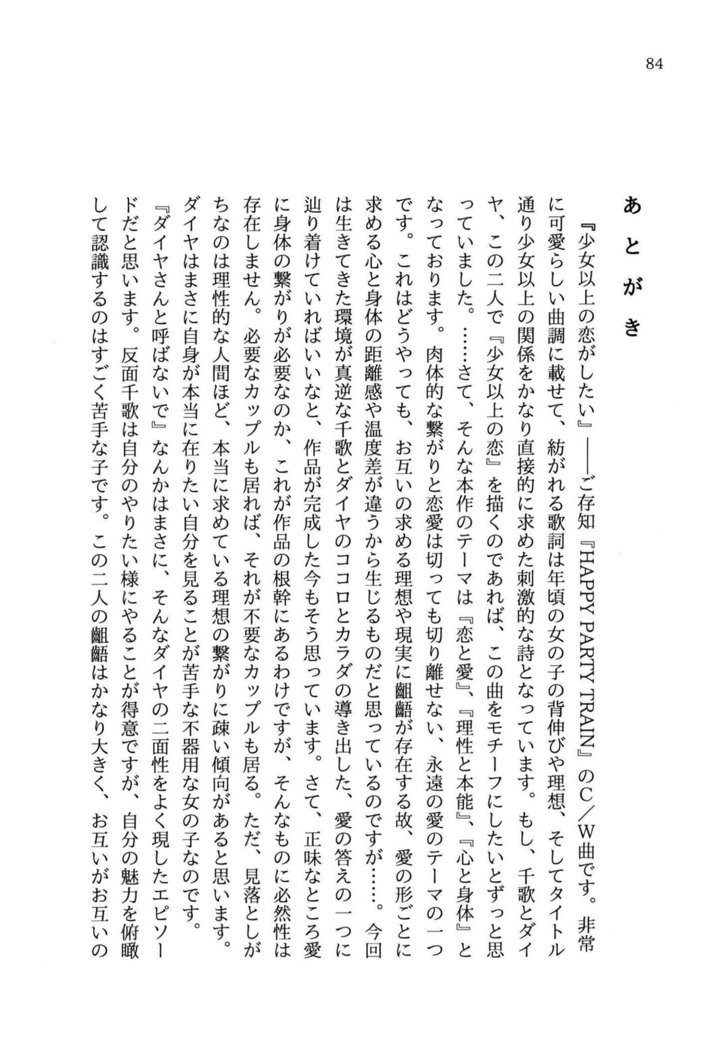 84
あとがき
『少女以上の恋がしたい』――ご存知『HAPPY PARTY TRAIN』のC／W曲です。非常
に可愛らしい曲調に載せて、紡がれる歌詞は年頃の女の子の背伸びや理想、そしてタイトル
通り少女以上の関係をかなり直接的に求めた刺激的な詩となっています。もし、千歌とダイ
ヤ、この二人で『少女以上の恋』を描くのであれば、この曲をモチーフにしたいとずっと思
っていました。……さて、そんな本作のテーマは『恋と愛』、『理性と本能』、『心と身体』と
なっております。肉体的な繋がりと恋愛は切っても切り離せない、永遠の愛のテーマの一つ
です。これはどうやっても、お互いの求める理想や現実に齟齬が存在する故、愛の形ごとに
求める心と身体の距離感や温度差が違うから生じるものだと思っているのですが……。今回
は生きてきた環境が真逆な千歌とダイヤのココロとカラダの導き出した、愛の答えの一つに
辿り着けていればいいなと、作品が完成した今もそう思っています。さて、正味なところ愛
に身体の繋がりが必要なのか、これが作品の根幹にあるわけですが、そんなものに必然性は
存在しません。必要なカップルも居れば、それが不要なカップルも居る。ただ、見落としが
ちなのは理性的な人間ほど、本当に求めている理想の繋がりに疎い傾向があると思います。
ダイヤはまさに自身が本当に在りたい自分を見ることが苦手な不器用な女の子なのです。
『ダイヤさんと呼ばないで』なんかはまさに、そんなダイヤの二面性をよく現したエピソー
ドだと思います。反面千歌は自分のやりたい様にやることが得意ですが、自分の魅力を俯瞰
して認識するのはすごく苦手な子です。この二人の齟齬はかなり大きく、お互いがお互いの